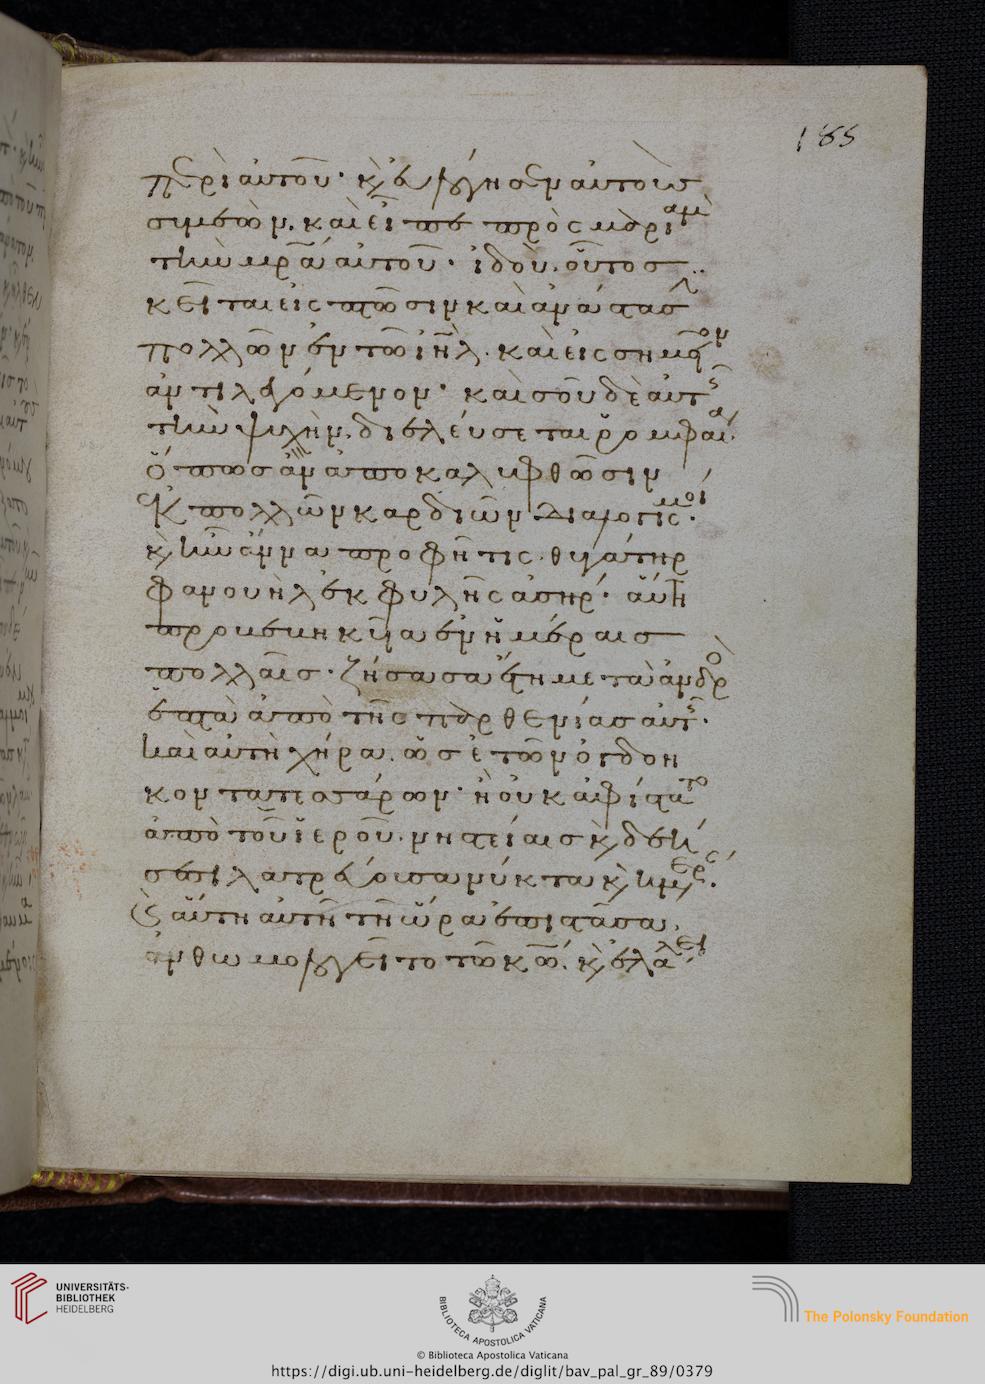 185
περὶ αὐτοῦ· κ(αὶ) εὐλόγησεν αὐτοὺς
συμεὼν. καὶ εἶπε πρὸς μαριὰμ
τὴν μρ̅α αὐτοῦ· ἰδοὺ. οὗτος
κεῖται εἰς πτῶσιν καὶ ἀνάστασ
πολλῶν ἐν τῶ ιη̅λ. καὶ εἰς σημεῖον
ἀντιλεγόμενον· καὶ σοῦ δὲ αὐτῆς
τὴν ψυχὴν. διελεύσεται ῥομφαία.
ὅπως ἂν ἀποκαλυφθῶσιν
ἐκ πολλῶν καρδιῶν. διαλογισμοί.
κ(αὶ) ἦν ἄννα προφῆτις. θυγάτηρ
φανουὴλ ἐκ φυλῆς ἀσήρ. αὕτη
προβεβηκυῖα ἐν ἡμέραις
πολλαῖς. ζήσασα ἔτη μετὰ ἀνδρὸ
ἑπτὰ ἀπὸ τῆς παρθενίας αὐτῆς.
καὶ αὐτὴ χήρα. ὡς ἐτῶν ὀγδοη
κονταπεσσάρων· ἣ οὐκ ἀφίστατο
ἀπὸ τοῦ ἱεροῦ. νηστείαις κ(αὶ) δεή
σεσι λατρεύουσα νύκτα κ(αὶ) ἡμέρ.
κ(αὶ) αὕτη αὐτῆ τῆ ὥρα ἐπιστᾶσα.
ἀνθωμολογεῖτο τῶ κω̅. κ(αὶ) ἐλάλει
UNIVERSITÄTS-
BIBLIOTHEK
HEIDELBERG
BIBLIOTECA APOSTOLICA VATICANA
The Polonsky Foundation
© Biblioteca Apostolica Vaticana
https://digi.ub.uni-heidelberg.de/diglit/bav_pal_gr_89/0379